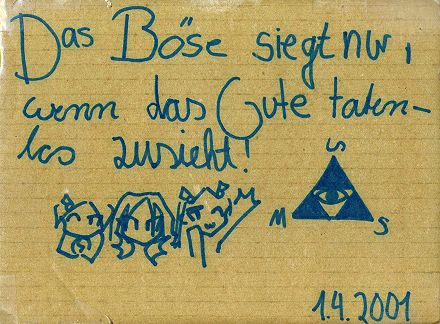 Das Böse siegt nur,
wenn das Gute taten-
los zusieht!
U
M S
1.4.2001